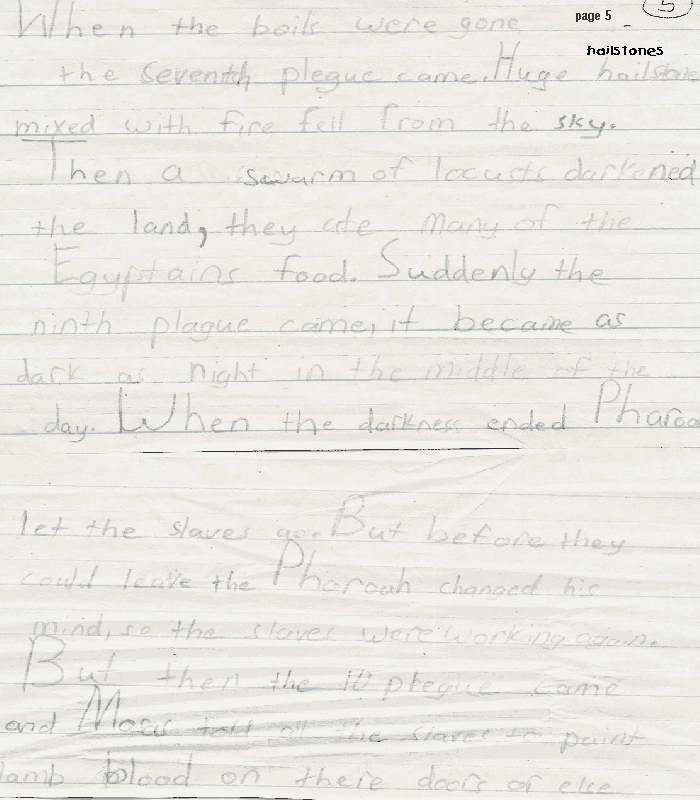 page 5
5
hailstones
When the boils were gone
the seventh plegue came. Huge hailstone
mixed with fire fell from the sky.
Then a swarm of locusts darkened
the land, they ate many of the
Egyptains food. Suddenly the
ninth plague came, it became as
dark as night in the middle of the
day. When the darkness ended Pharao
let the slaves go. But before they
could leave the Pharouh changed his
mind, so the slaves were working again.
But then the 10 plegue came
and Moses told all the slaves to paint
lamb blood on there doors or else